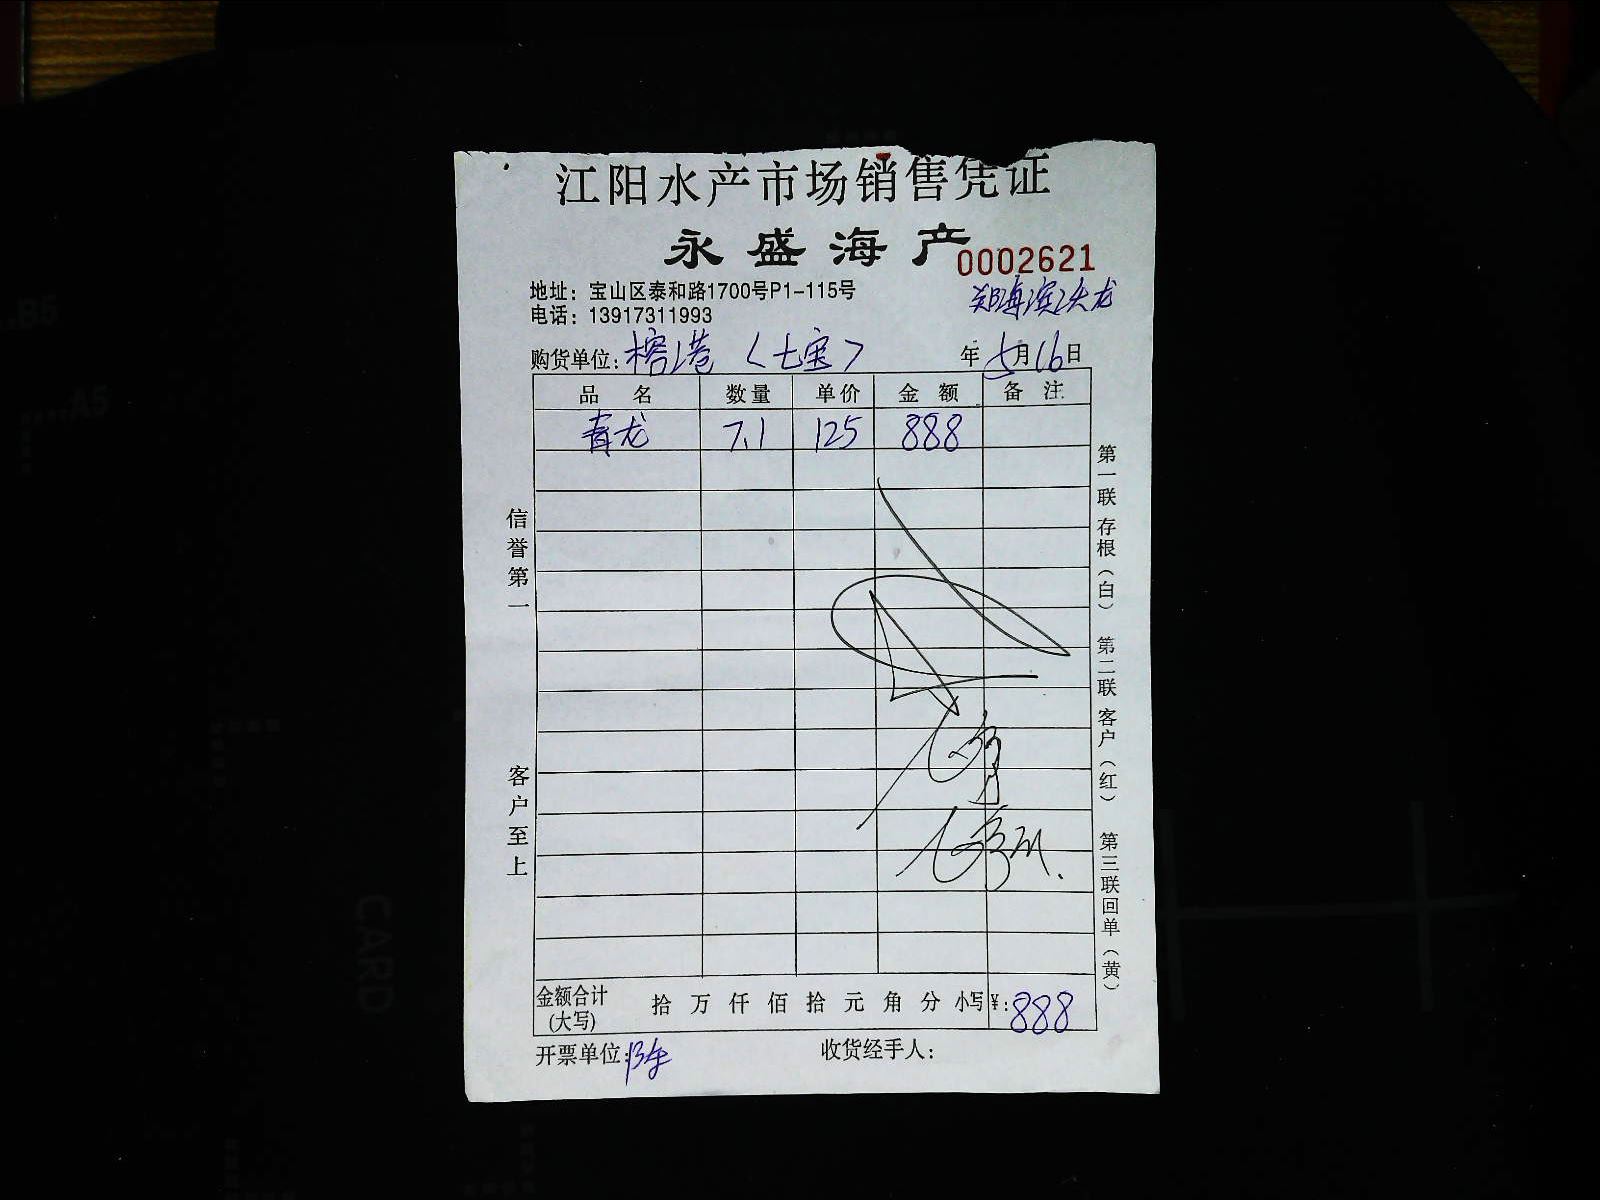 江阳水产市场销售凭证
永盛海产
0002621
地址：宝山区泰和路1700号P1-115号
电话：13917311993
购货单位：榕港（七宝） 年5月16日
品名 数量 单价 金额 备注
青龙 7.1 125 888
信誉第一
客户至上
第一联 存根（白） 第二联 客户（红） 第三联 回单（黄）
金额合计（大写） 拾 万 仟 佰 拾 元 角 分 小写 ¥：888
开票单位： 收货经手人：
B5
A5
CARD